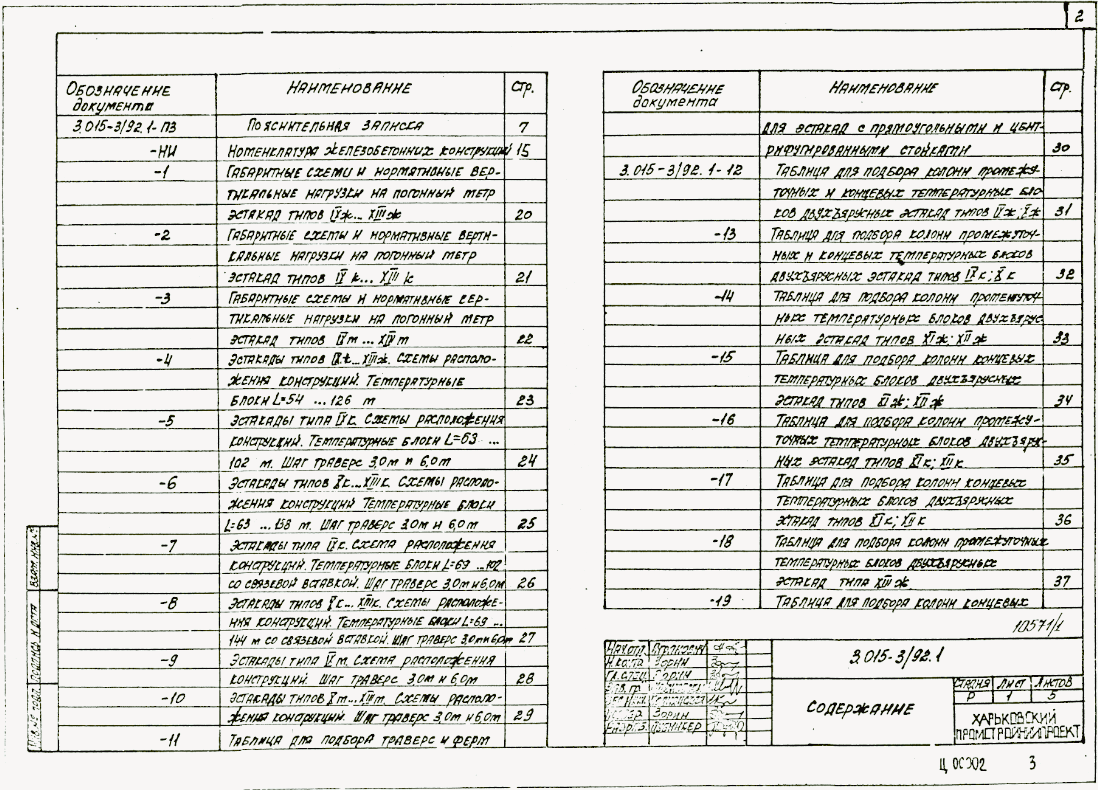 2
Обозначение документа Наименование Стр.
3.015-3/92.1-ПЗ Пояснительная записка 7
-НИ Номенклатура железобетонных конструкций 15
-1 Габаритные схемы и нормативные вер-
тикальные нагрузки на погонный метр
эстакад типов IX ж... XIII ж 20
-2 Габаритные схемы и нормативные верти-
кальные нагрузки на погонный метр
эстакад типов IX к... XIII к 21
-3 Габаритные схемы и нормативные вер-
тикальные нагрузки на погонный метр
эстакад типов IX т... XIII т 22
-4 Эстакады типов IX ж... XIII ж. Схемы располо-
жения конструкций. Температурные
блоки L=54 ...126 м 23
-5 Эстакады типа IX к. Схемы расположения
конструкций. Температурные блоки L=63 ...
102 м. Шаг траверс 3,0м и 6,0м 24
-6 Эстакады типов X к... XIII к. Схемы располо-
жения конструкций Температурные блоки
L=63 ...138 м. Шаг траверс 3,0м и 6,0м 25
-7 Эстакады типа IX к. Схема расположения
конструкций. Температурные блоки L=69 ...102
со связевой вставкой. Шаг траверс 3,0м и 6,0м 26
-8 Эстакады типов X к... XIII к. Схемы расположе-
ния конструкций. Температурные блоки L=69 ...
144 м со связевой вставкой. Шаг траверс 3,0м и 6,0м 27
-9 Эстакады типа IX т. Схема расположения
конструкций. Шаг траверс 3,0м и 6,0м 28
-10 Эстакады типов X т... XIII т. Схемы располо-
жения конструкций. Шаг траверс 3,0м и 6,0м 29
-11 Таблица для подбора траверс и ферм
Обозначение документа Наименование Стр.
для эстакад с прямоугольными и цент-
рифугированными стойками 30
3.015-3/92.1-12 Таблица для подбора колонн промежу-
точных и концевых температурных бло-
ков двухъярусных эстакад типов IX ж; X ж 31
-13 Таблица для подбора колонн промежуточ-
ных и концевых температурных блоков
двухъярусных эстакад типов IX к; X к 32
-14 Таблица для подбора колонн промежуточ-
ных температурных блоков двухъярус-
ных эстакад типов XI ж; XII ж 33
-15 Таблица для подбора колонн концевых
температурных блоков двухъярусных
эстакад типов XI ж; XII ж 34
-16 Таблица для подбора колонн промежу-
точных температурных блоков двухъярус-
ных эстакад типов XI к; XII к 35
-17 Таблица для подбора колонн концевых
температурных блоков двухъярусных
эстакад типов XI к; XII к 36
-18 Таблица для подбора колонн промежуточных
температурных блоков двухъярусных
эстакад типа XIII ж 37
-19 Таблица для подбора колонн концевых
10571/1
3.015-3/92.1
Содержание
Стадия Лист Листов
Р 1 5
Харьковский
Промстройниипроект
Нач.отд.
Н.контр. Зорин
Гл.спец. Зорин
Зорин
Ц 00302 3
Взам.инв.№
Подпись и дата
Инв.№ подл.